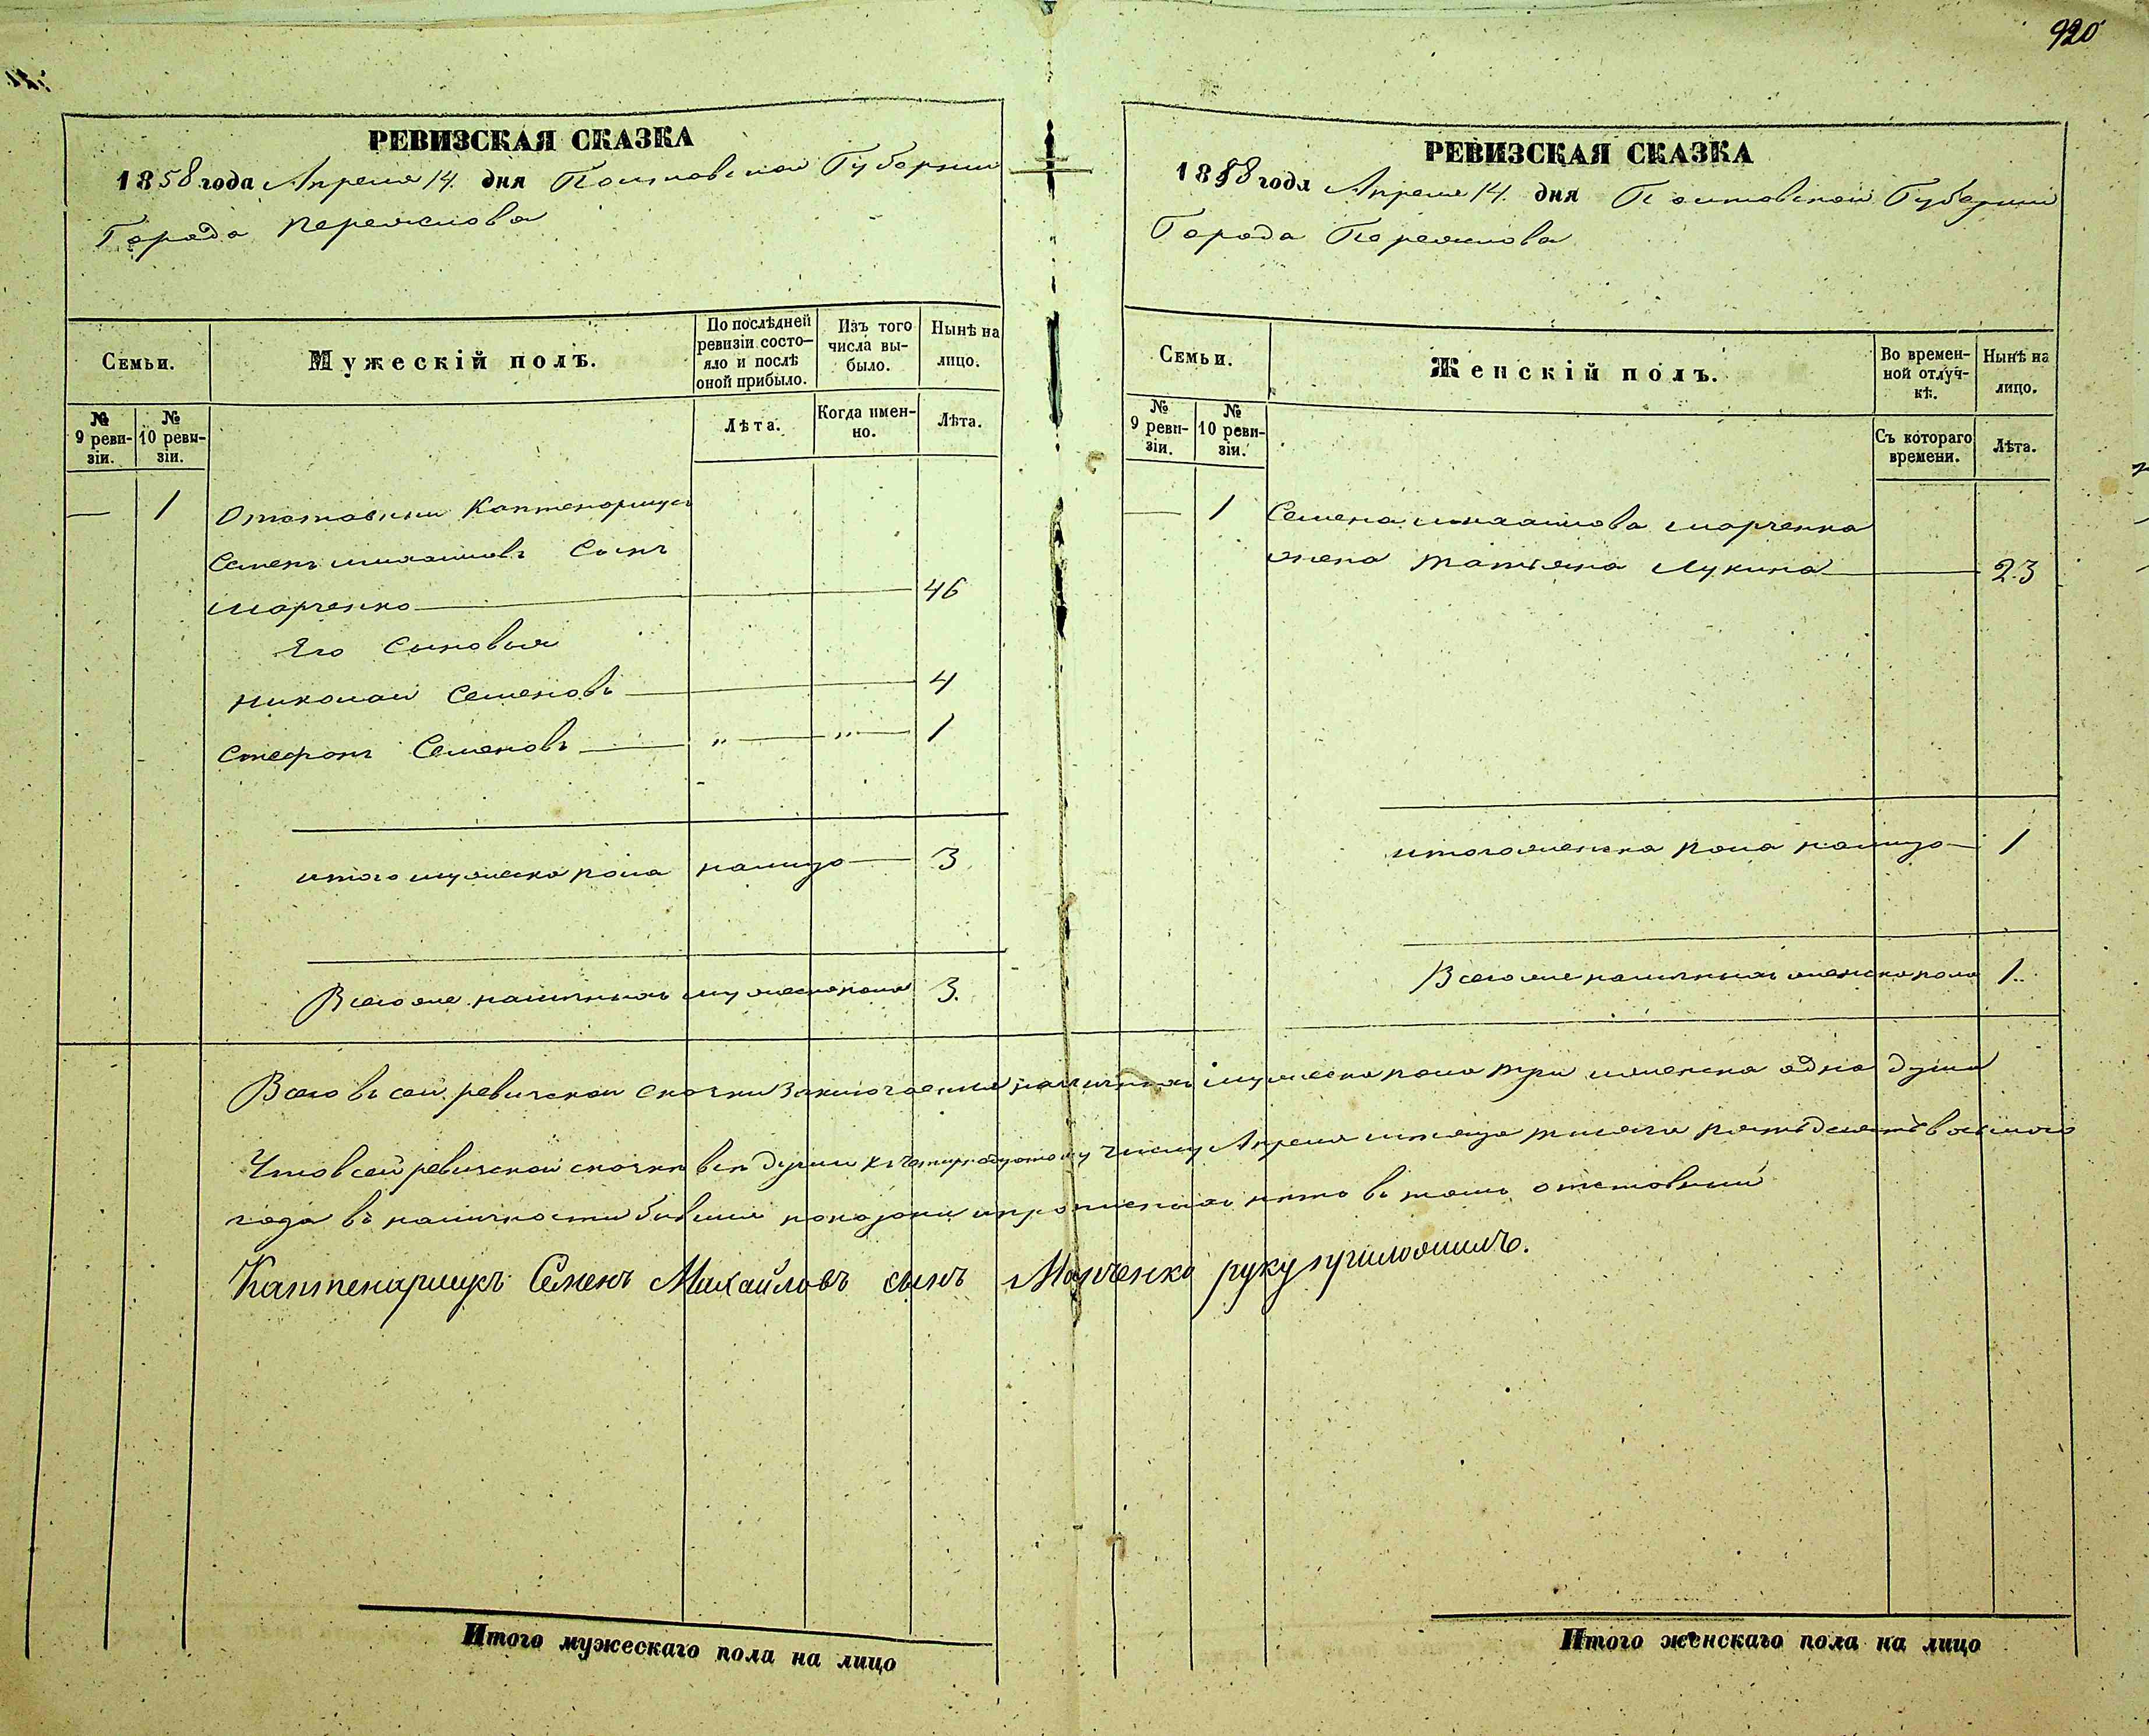 920
РЕВИЗСКАЯ СКАЗКА
1858 года Апреля 14. дня Полтовской Губернии
Города Переяслова
Семьи.
Мужескій полъ.
По послѣдней ревизіи состояло и послѣ оной прибыло.
Изъ того числа выбыло.
Нынѣ на лицо.
№ 9 ревизіи.
№ 10 ревизіи.
Лѣта.
Когда именно.
Лѣта.
— 1 Отставный Каптенармусъ
Семенъ михаиловъ Сынъ
марченко 46
Его Сыновья
николай Семеновъ 4
Стефанъ Семеновъ " " 1
итого мужеска пола налицо 3
Всего же наличныхъ мужеска пола 3.
РЕВИЗСКАЯ СКАЗКА
1858 года Апреля 14. дня Полтовской Губернии
Города Переяслова
Семьи.
Женскій полъ.
Во временной отлучкѣ.
Нынѣ на лицо.
№ 9 ревизіи.
№ 10 ревизіи.
Съ котораго времени.
Лѣта.
— 1 Семена михаилова марченка
жена татіяна Лукина 23
итого женска пола налицо 1
Всего же наличныхъ женска пола 1.
Всего въ сей ревизской сказки заключается наличныхъ мужеска пола три иженска одна душа
Что в сей ревизской сказки все души къ четырнадцатому числу Апреля месяца тысяча пятьдесятъ восьмого
года въ наличности бывшия показаны и прописныхъ нетъ въ томъ отставный
Каптенармусъ Семенъ Михайловъ сынъ Марченко руку приложилъ.
Итого мужескаго пола на лицо
Итого женскаго пола на лицо